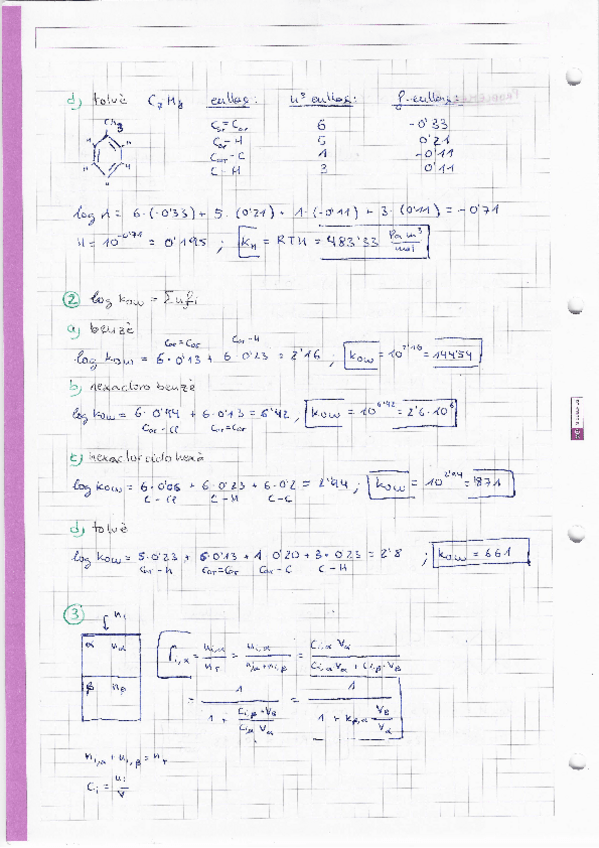 d) toluè C7H8 enllaç: nº enllaç: f-enllaç:
CH3
Car=Car 6 -0'33
Car-H 5 0'21
Car-C 1 -0'11
C-H 3 0'11
log H = 6·(-0'33) + 5·(0'21) + 1·(-0'11) + 3·(0'11) = -0'71
H = 10^-0'71 = 0'195 ; KH = RTH = 483'33 Pa m³/mol
2 log Kow = Σnifi
a) benzè
Car=Car Car-H
log Kow = 6·0'13 + 6·0'23 = 2'16 ; Kow = 10^2'16 = 144'54
b) hexacloro benzè
log Kow = 6·0'94 + 6·0'13 = 6'42, Kow = 10^6'42 = 2'6·10^6
Car-Cl Car=Car
c) hexaclorciclohexà
log Kow = 6·0'06 + 6·0'23 + 6·0'2 = 2'94 ; Kow = 10^2'94 = 871
C-Cl C-H C-C
d) toluè
log Kow = 5·0'23 + 6·0'13 + 1·0'20 + 3·0'23 = 2'8 ; Kow = 661
Car-H Car=Car Car-C C-H
3
ni
α nα
β nβ
fi,α = ni,α/nT = ni,α/(ni,α + ni,β) = Ci,α Vα/(Ci,α Vα + Ci,β·Vβ)
= 1/(1 + Ci,β·Vβ/Ci,α Vα) = 1/(1 + Kβ,α Vβ/Vα)
ni,α + ni,β = nT
Ci = ni/V